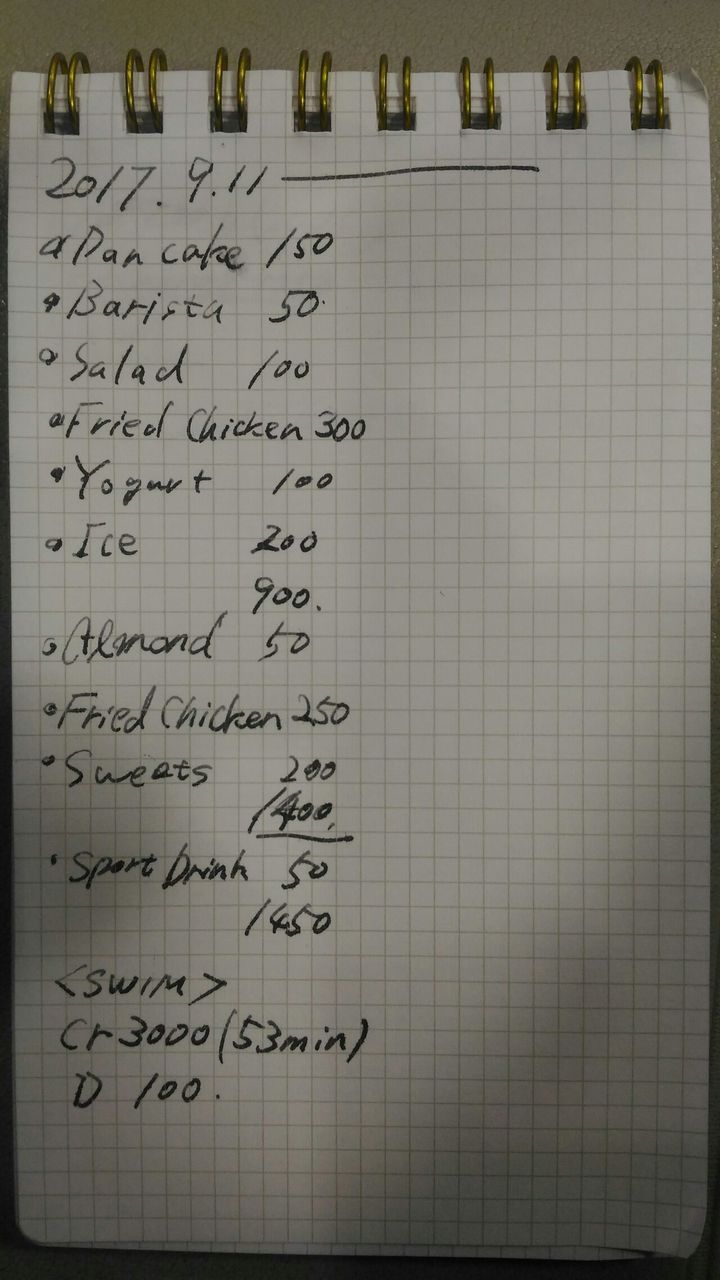 2017. 9.11
• Pan cake 150
• Barista 50
• Salad 100
• Fried Chicken 300
• Yogurt 100
• Ice 200
900.
• Almond 50
• Fried Chicken 250
• Sweats 200
1400.
• Sport Drink 50
1450
<SWIM>
Cr 3000 (53min)
D 100.